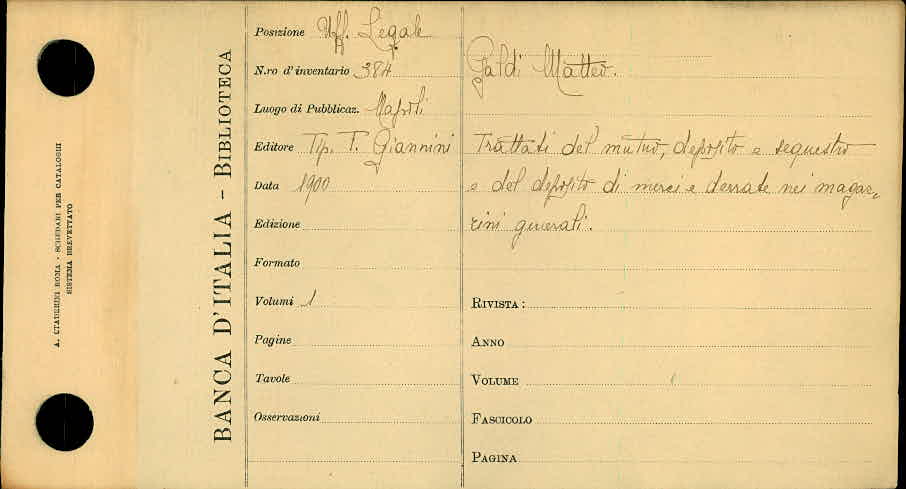 A. STADERINI ROMA - SCHEDARI PER CATALOGHI
SISTEMA BREVETTATO
BANCA D'ITALIA - BIBLIOTECA
Posizione Uff. Legale
N.ro d'inventario 384
Luogo di Pubblicaz. Napoli
Editore Tip. F. Giannini
Data 1900
Edizione
Formato
Volumi 1
Pagine
Tavole
Osservazioni
Galdi Matteo.
Trattati del mutuo, deposito e sequestro
e del deposito di merci e derrate nei magaz,
zini generali.
RIVISTA:
ANNO
VOLUME
FASCICOLO
PAGINA